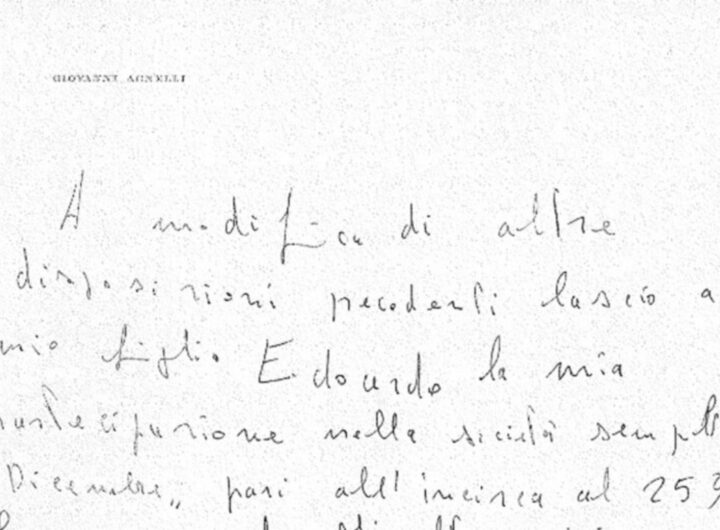 GIOVANNI AGNELLI
A modifica di altre
disposizioni precedenti lascio a
mio figlio Edoardo la mia
partecipazione nella società sempl
Dicembre„ pari all'incirca al 25%